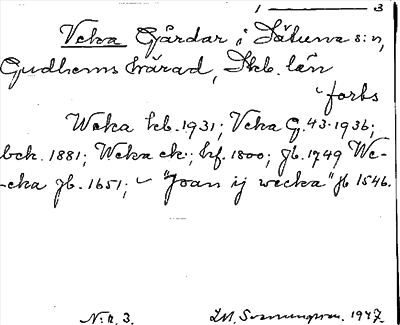 1 — 3
Veka Gårdar i Sätuna s:n,
Gudhems härad, Skb. län
forts
Weka kb. 1931; Veka G. 43. 1936;
bck. 1881; Weka ek.; hf. 1800; Jb. 1749 We-
-cka Jb. 1651; – "Joan ij wecka" Jb 1546.
N:r. 3. 1947.